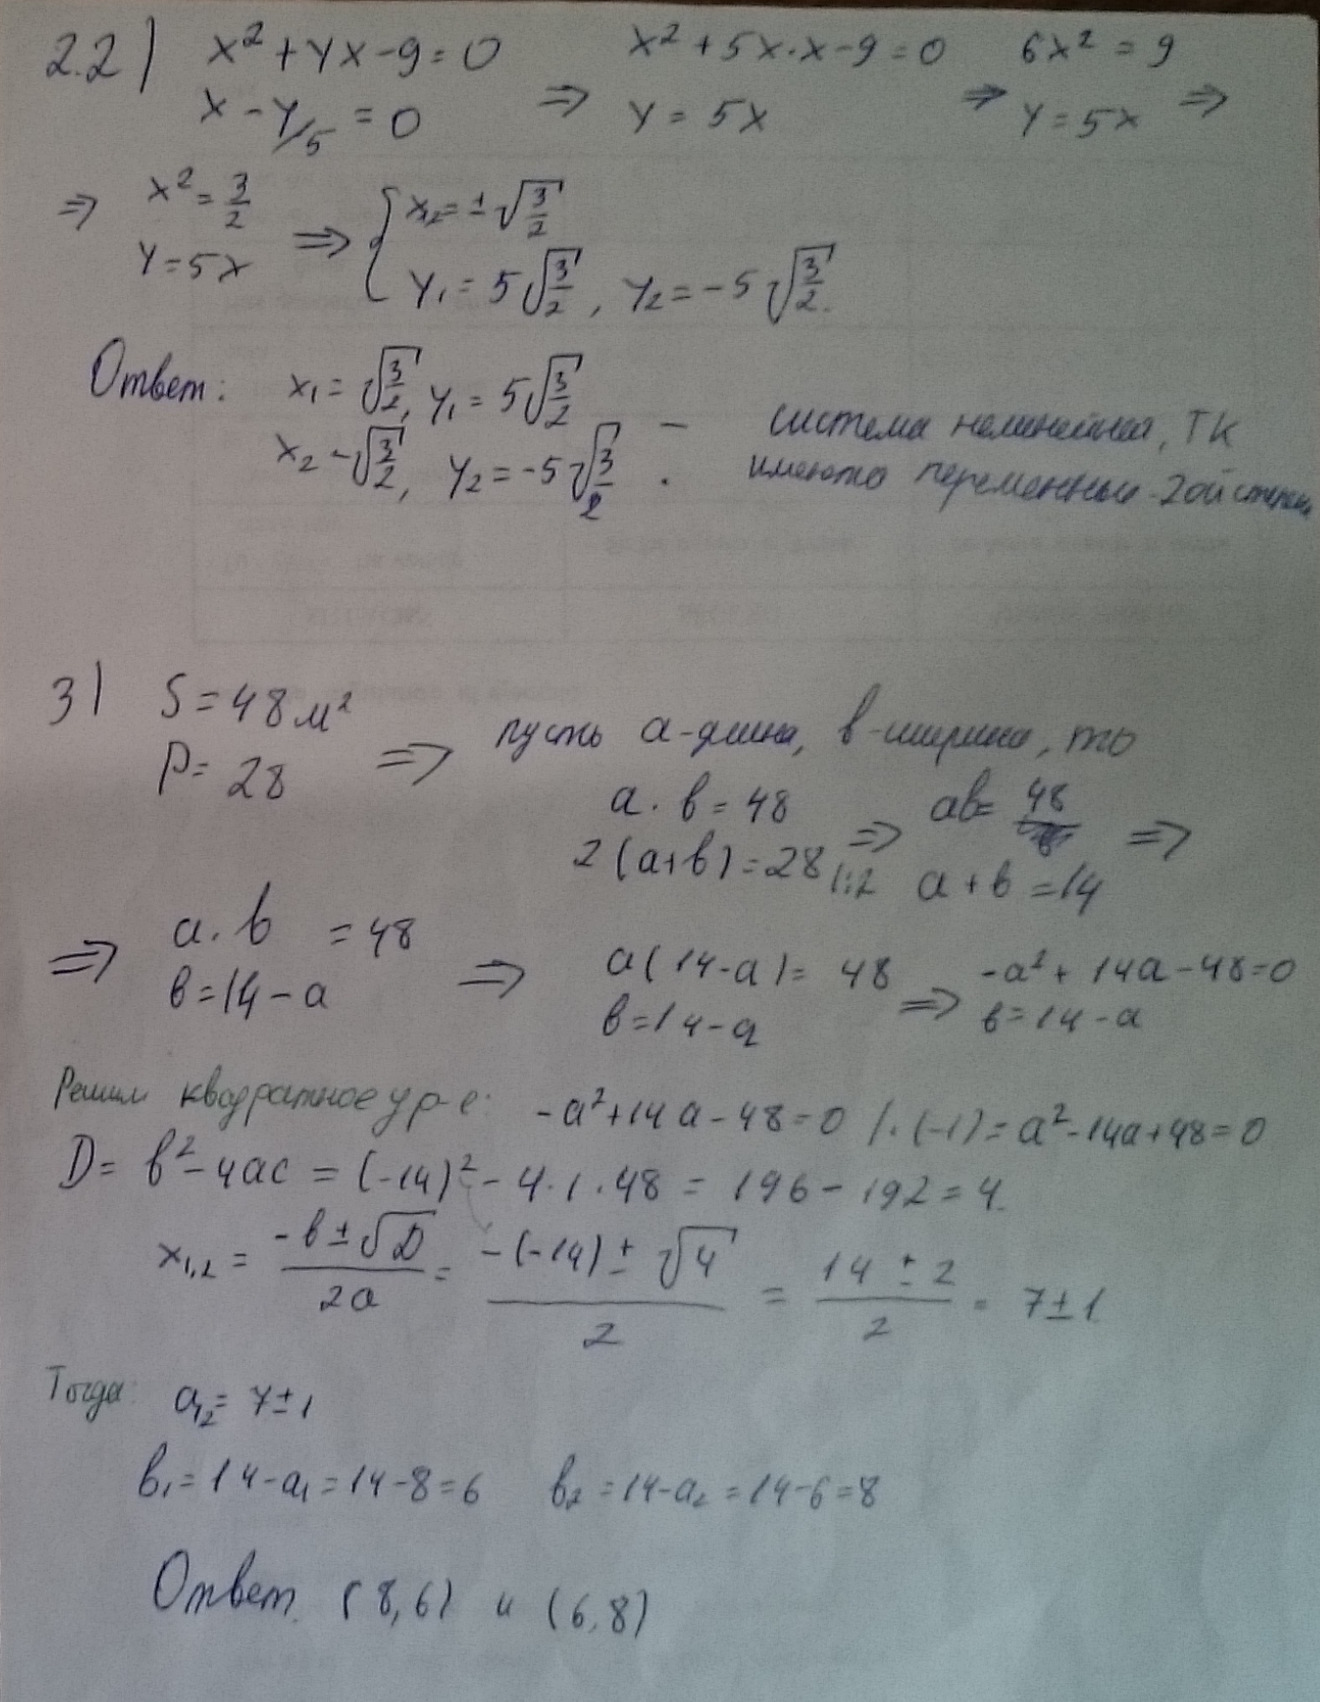 2.2) x² + yx - 9 = 0 ⇒ x² + 5x·x - 9 = 0 ⇒ 6x² = 9 ⇒
x - y/5 = 0 y = 5x y = 5x
⇒ x² = 3/2 ⇒ { x₁,₂ = ± √(3/2)
y = 5x y₁ = 5√(3/2), y₂ = -5√(3/2).
Ответ: x₁ = √(3/2), y₁ = 5√(3/2) — система нелинейная, тк
x₂ - √(3/2), y₂ = -5√(3/2). имеются переменные 2ой степени
3) S = 48 м²
P = 28 ⇒ пусть a - длина, b - ширина, то
a · b = 48 ⇒ ab = 48 ⇒
2(a+b) = 28 |:2 a + b = 14
⇒ a · b = 48 ⇒ a(14-a) = 48 ⇒ -a² + 14a - 48 = 0
b = 14 - a b = 14 - a b = 14 - a
Решим квадратное ур-е: -a² + 14a - 48 = 0 /·(-1) = a² - 14a + 48 = 0
D = b² - 4ac = (-14)² - 4·1·48 = 196 - 192 = 4
x₁,₂ = (-b ± √D)/2a = (-(-14) ± √4)/2 = (14 ± 2)/2 = 7 ± 1
Тогда: a₁,₂ = 7 ± 1
b₁ = 14 - a₁ = 14 - 8 = 6 b₂ = 14 - a₂ = 14 - 6 = 8
Ответ. (8,6) и (6,8)